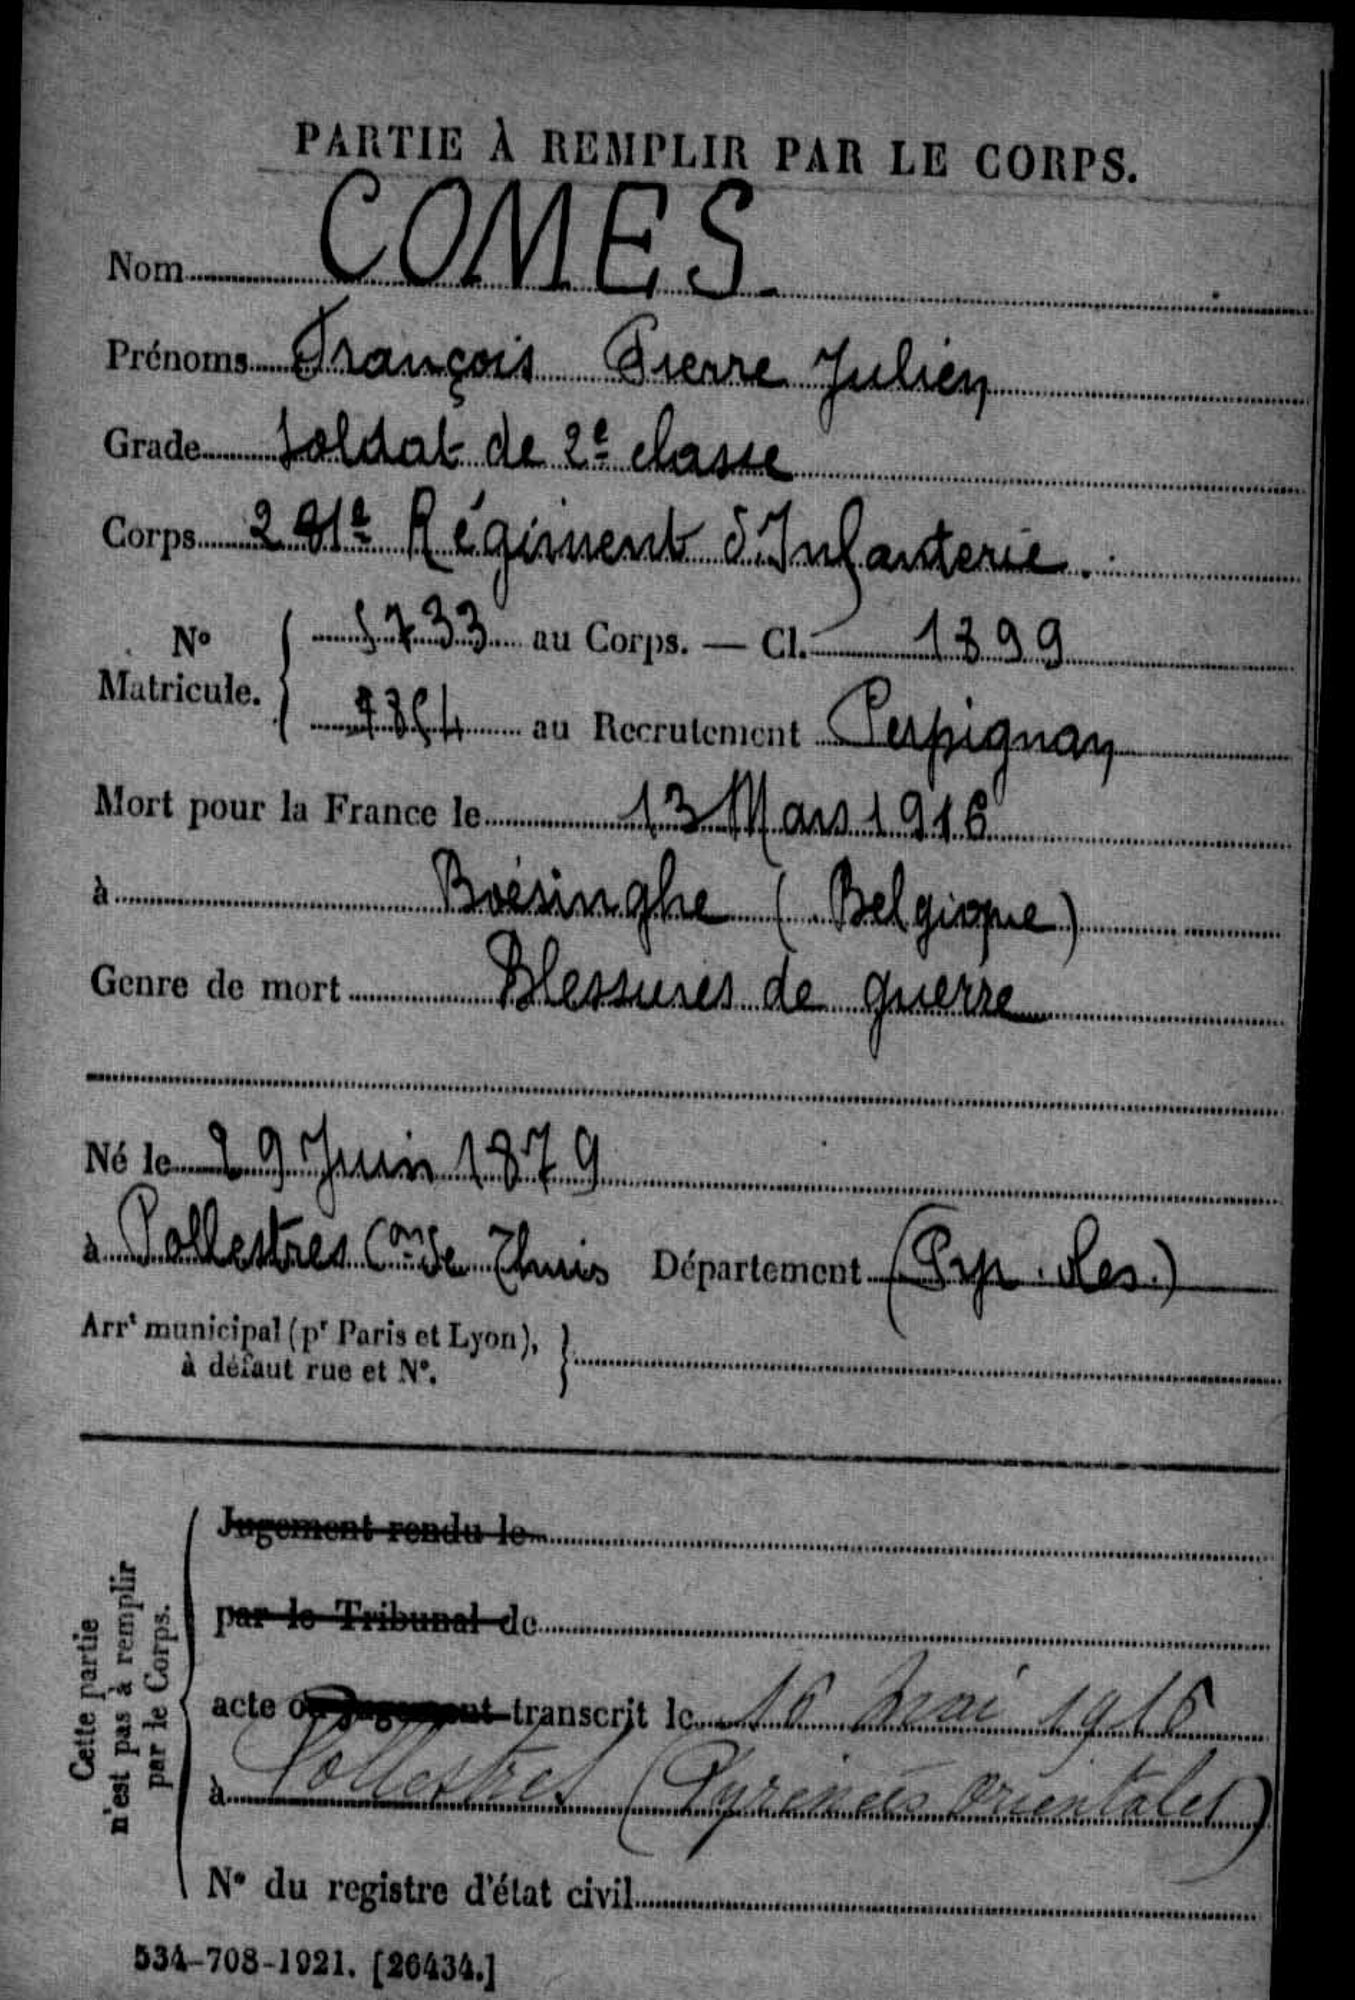 PARTIE À REMPLIR PAR LE CORPS.
Nom COMES
Prénoms François Pierre Julien
Grade Soldat de 2e classe
Corps 281e Régiment d'Infanterie.
No Matricule. { 5733 au Corps. — Cl. 1899
au Recrutement Perpignan
Mort pour la France le 13 Mars 1916
à Boësinghe (Belgique)
Genre de mort Blessures de guerre
Né le 29 Juin 1879
à Pollestres Con de Thuis Département (Pyr. Les.)
Arrt municipal (pr Paris et Lyon), }
à défaut rue et No.
Cette partie
n'est pas à remplir
par le Corps.
Jugement rendu le
par le Tribunal de
acte ou jugement transcrit le 16 mai 1916
à Pollestres (Pyrénées Orientales)
No du registre d'état civil
534-708-1921. [26434.]